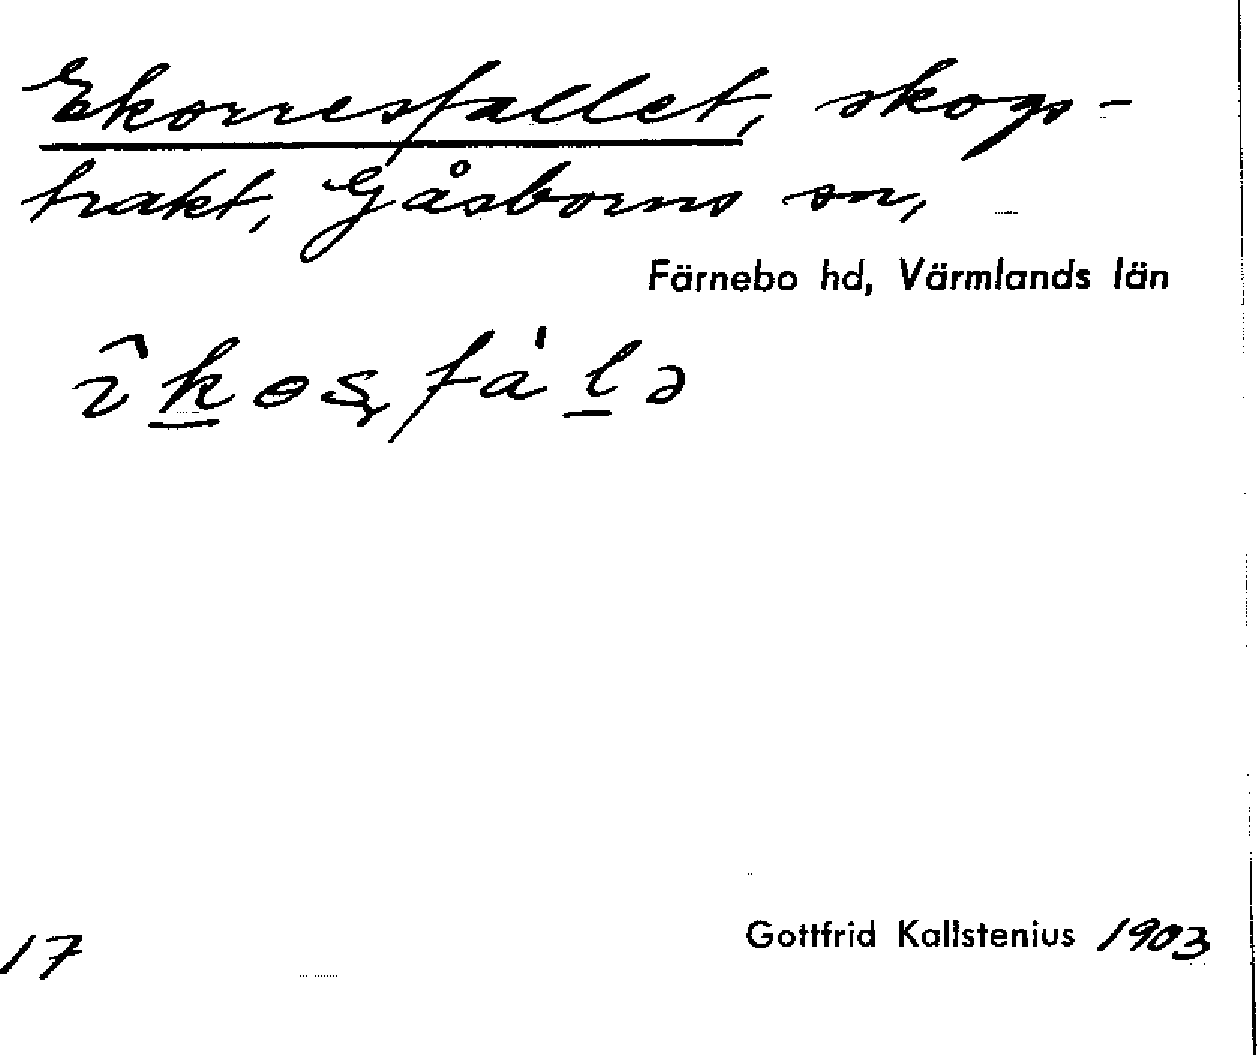 Ekorresfallet, skogs-
trakt, Gåsborns sn,
Färnebo hd, Värmlands län
îkɵʂfàlə
Gottfrid Kallstenius 1903
17